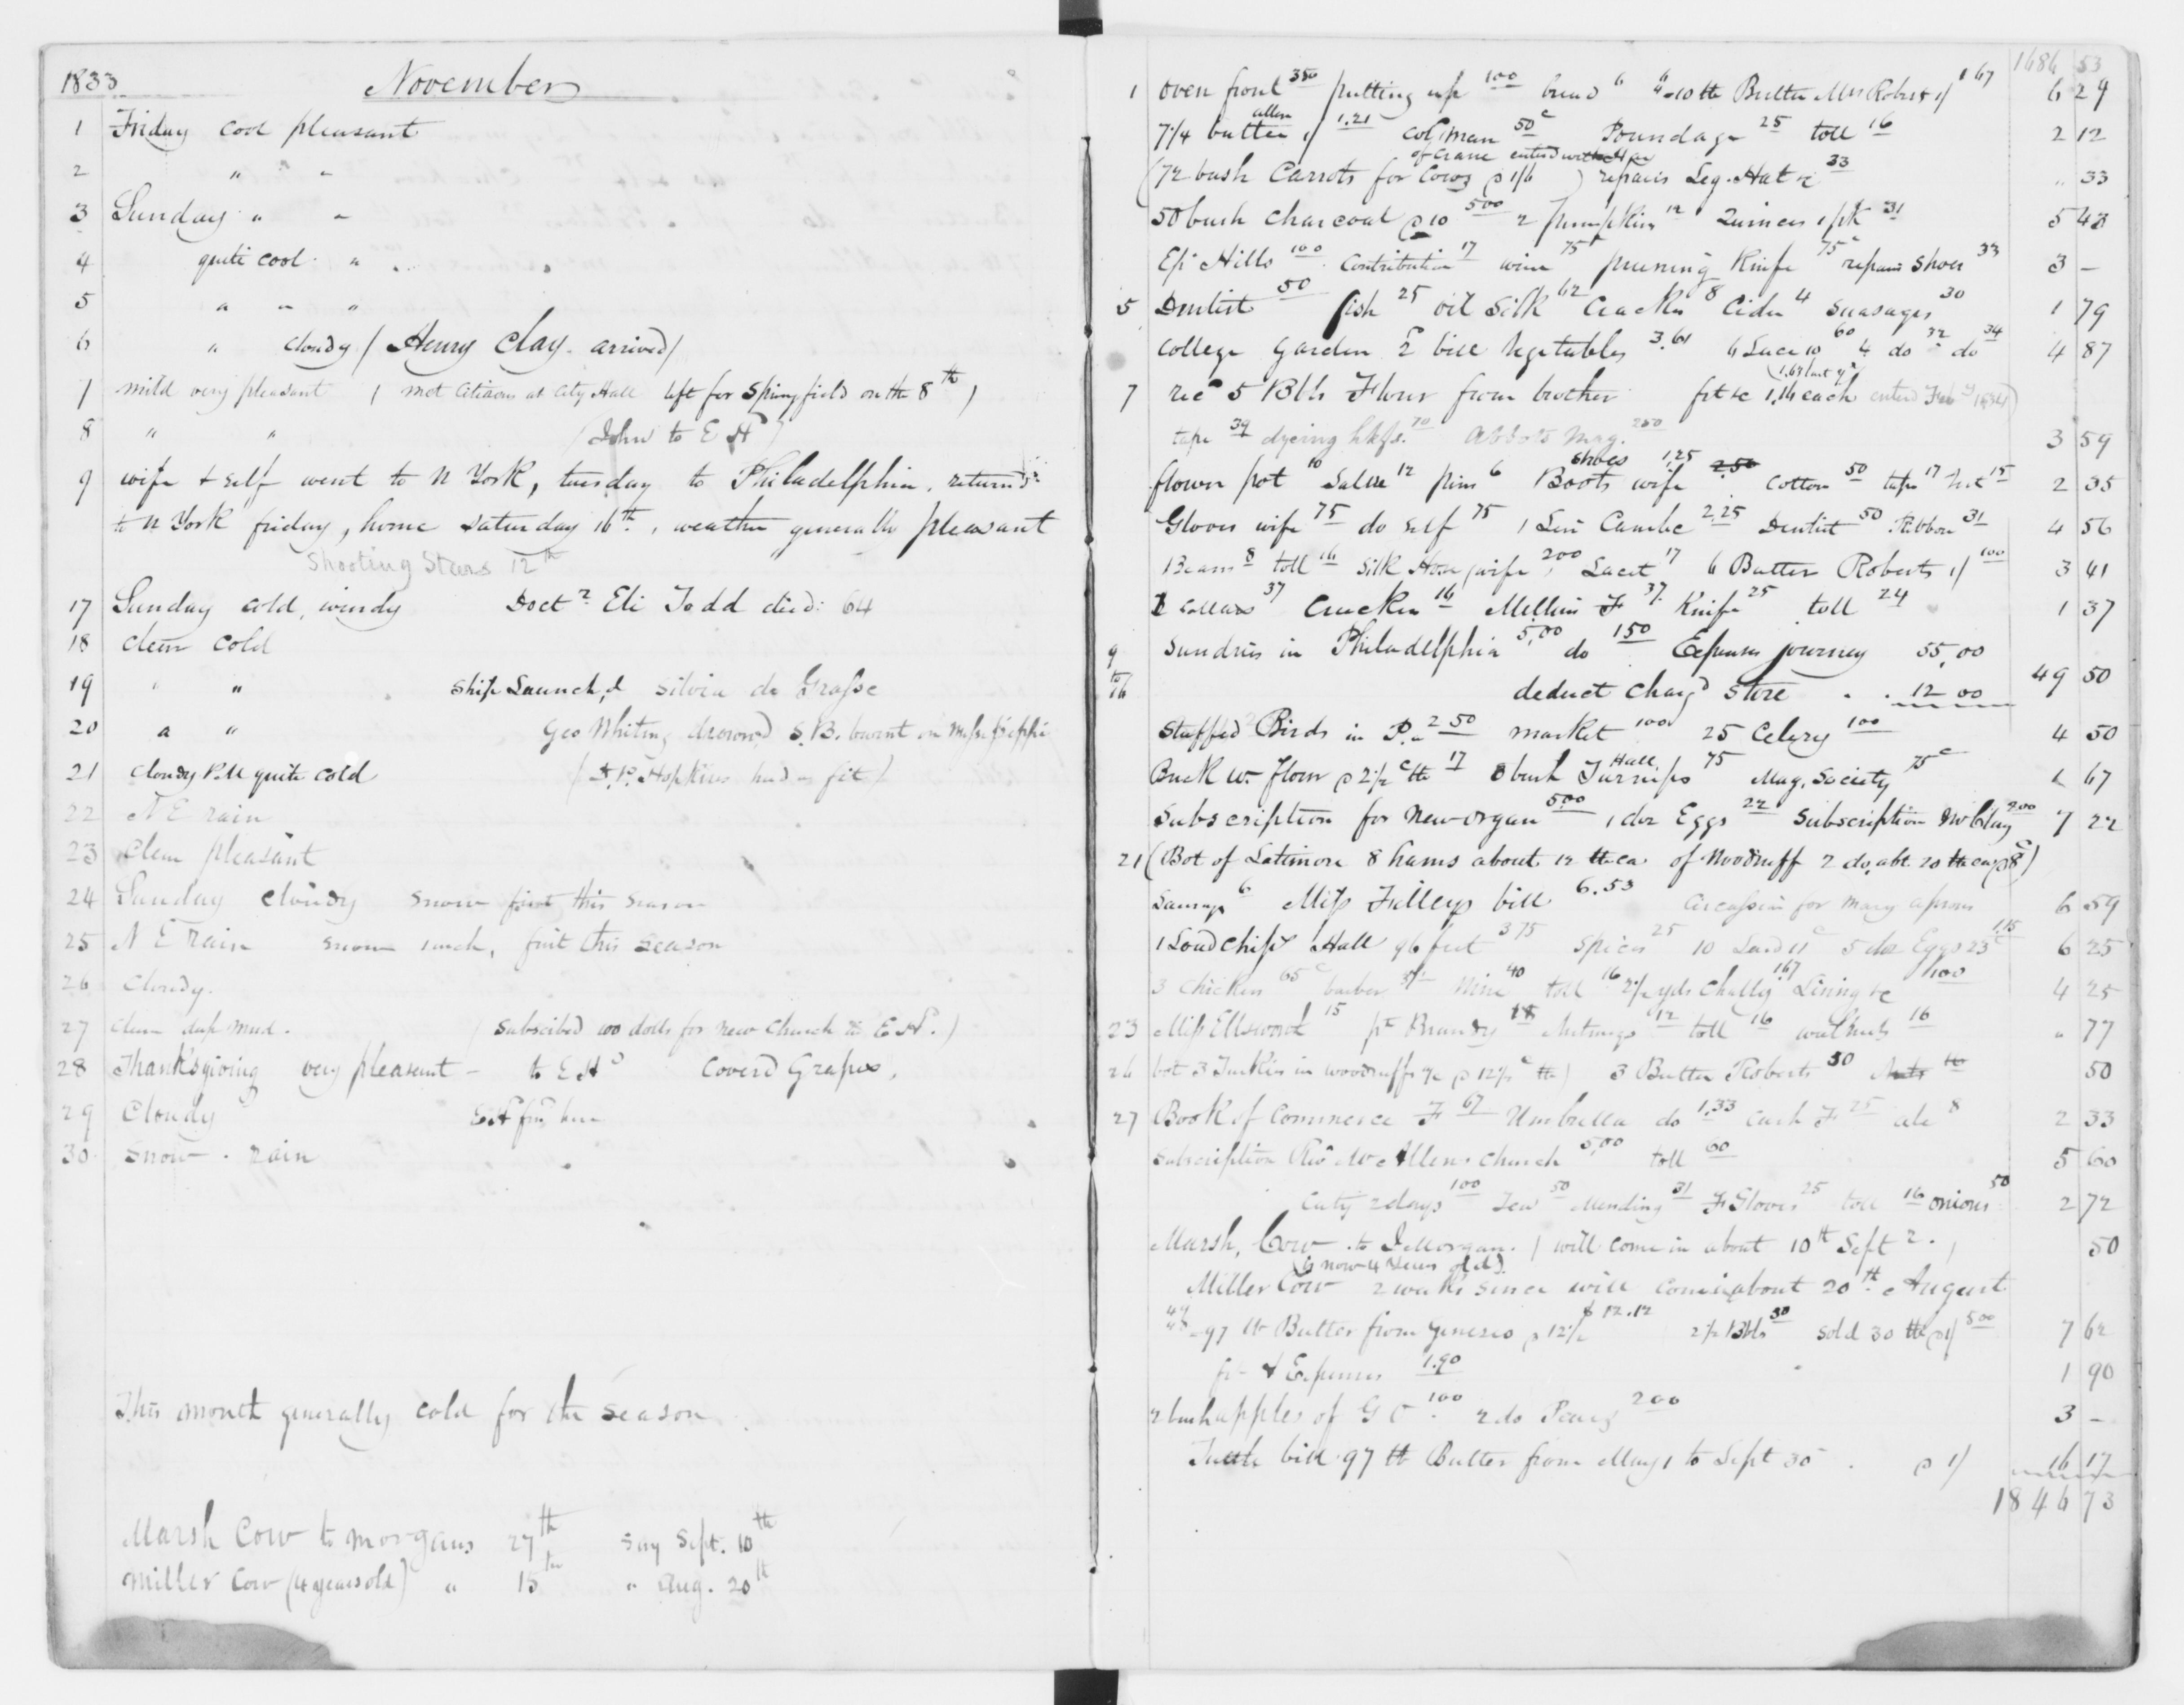 1833 November
1 Friday cool pleasant
2 " "
3 Sunday " "
4 quite cool "
5 " " "
6 " cloudy / Henry Clay arrived /
7 mild very pleasant ( met Citizens at City Hall left for Springfield on the 8th )
8 " " (John to E Hd)
9 wife & self went to N York, tuesday to Philadelphia, returnd
to N York friday, home saturday 16th, weather generally pleasant
Shooting Stars 12th
17 Sunday cold, windy Doctr Eli Todd died: 64
18 clear cold
19 " " Ship Launch,d Silvie de Grasse
20 " " Geo Whiting drownd S.B. burnt on Mississippi
21 cloudy P.M quite cold ( Hopkins had a fit )
22 N E rain
23 clear pleasant
24 Sunday cloudy snow first this season
25 N E rain snow inch, first this season
26 Cloudy.
27 clear deep mud. ( Subscibed 100 dolls for new Church in E H. )
28 Thanksgiving very pleasant - to E Hd Coverd Grapes,
29 Cloudy
30 Snow - rain
This month generally cold for the season
Marsh Cow to morgans 27th say Sept. 10th
Miller Cow (4 years old) " 15th " Aug. 20th
1686 53
1 Oven front 350 putting up 100 bread 6 10 lb Butter Mrs Roberts 1/ 167 6 29
7 1/4 butter 1/ 1.21 col,man 50c Poundage 25 toll 16 2 12
(72 bush Carrots for Cows @ 1/6 ) repairs Leg. Hat &c 33 " 33
50 bush charcoal @ 10 500 2 pumpkins 12 Quinces 1 pk 31 5 43
Epl Hills 100 Contribution 17 wine 75 pruning Knife 75c repairs shoes 33 3 -
5 Dentist 50 fish 25 oil Silk 62 Cracker 8 Cider 4 sausages 30 1 79
College Garden bill Vegetables 3.61 4 87
7 recd 5 Bbls Flour from brother frt &c 1,14 each enterd Feby 1834)
tape 39 dyeing hkfs. 70 Abbots Mag. 250 3 59
flower pot 10 Salve 12 pins 6 Boots shoes wife 1,25 2.50 cotton 50 tape 17 15 2 35
Gloves wife 75 do self 75 2.25 Dentist 50 Ribbon 31 4 56
Beans 8 toll 16 Silk Hose wife 200 Lacet 17 6 Butter Roberts 1/ 100 3 41
2 collars 37 Cracker 16 F 37 Knife 25 toll 24 1 37
9 to 16 Sundries in Philadelphia 5,00 do 150 Expenses journey 55,00
deduct chargd store 12 00 49 50
Stuffed Birds in P. 250 market 100 25 Celery 100 4 50
Buck w. flour @ 2 1/2c lb 17 bush Turnips Hall 75 Mag. Society 75c 1 67
Subscription for New organ 500 1 doz Eggs 22 Subscription Mr Clay 200 7 22
21 (Bot of Latimore 8 hams about 12 lb ea of Woodruff 2 do, abt 20 lb ea @ 8c)
Sausage 6 Miss Filleys bill 6.53 Circassian for Mary aprons 6 59
1 Load chips Hall 96 feet 375 Spices 25 10 Lard 11c 5 doz Eggs 23c 1,15 6 25
3 chickens 65c barber 37 Wine 40 toll 16 2 1/2 yds Chally 167 Lining &c 100 4 25
23 Miss Ellsworth 15 pt Brandy 18 Nutmegs 12 toll 16 walnuts 16 " 77
26 bot 3 Turkies in woodruffs @ 12 1/2c lb) 3 Butter Roberts 50 Nuts 10 50
27 Book of Commerce F 67 Umbrella do 1.33 cash F 25 ale 8 2 33
Subscription Revd Mr Allens church 5,00 toll 60 5 60
Caty 2 days 100 Tea 50 Mending 31 F Gloves 25 toll 16 onions 50 2 72
Marsh, Cow to J Morgan. ( will come in about 10th Sept 50
(is now 4 years old)
Miller Cow 2 weeks since will come in about 20th August
97 lb Butter from Geneseo @ 12 1/2 $12.12 2 1/2 Bbls 30 sold 30 lb @ 1/ 500 7 62
frt & Expenses 1.90 1 90
2 bush apples of G O 100 2 do Pears 200 3 -
Tuttle bill 97 lb Butter from May 1 to Sept 30 @ 1/ 16 17
1846 73